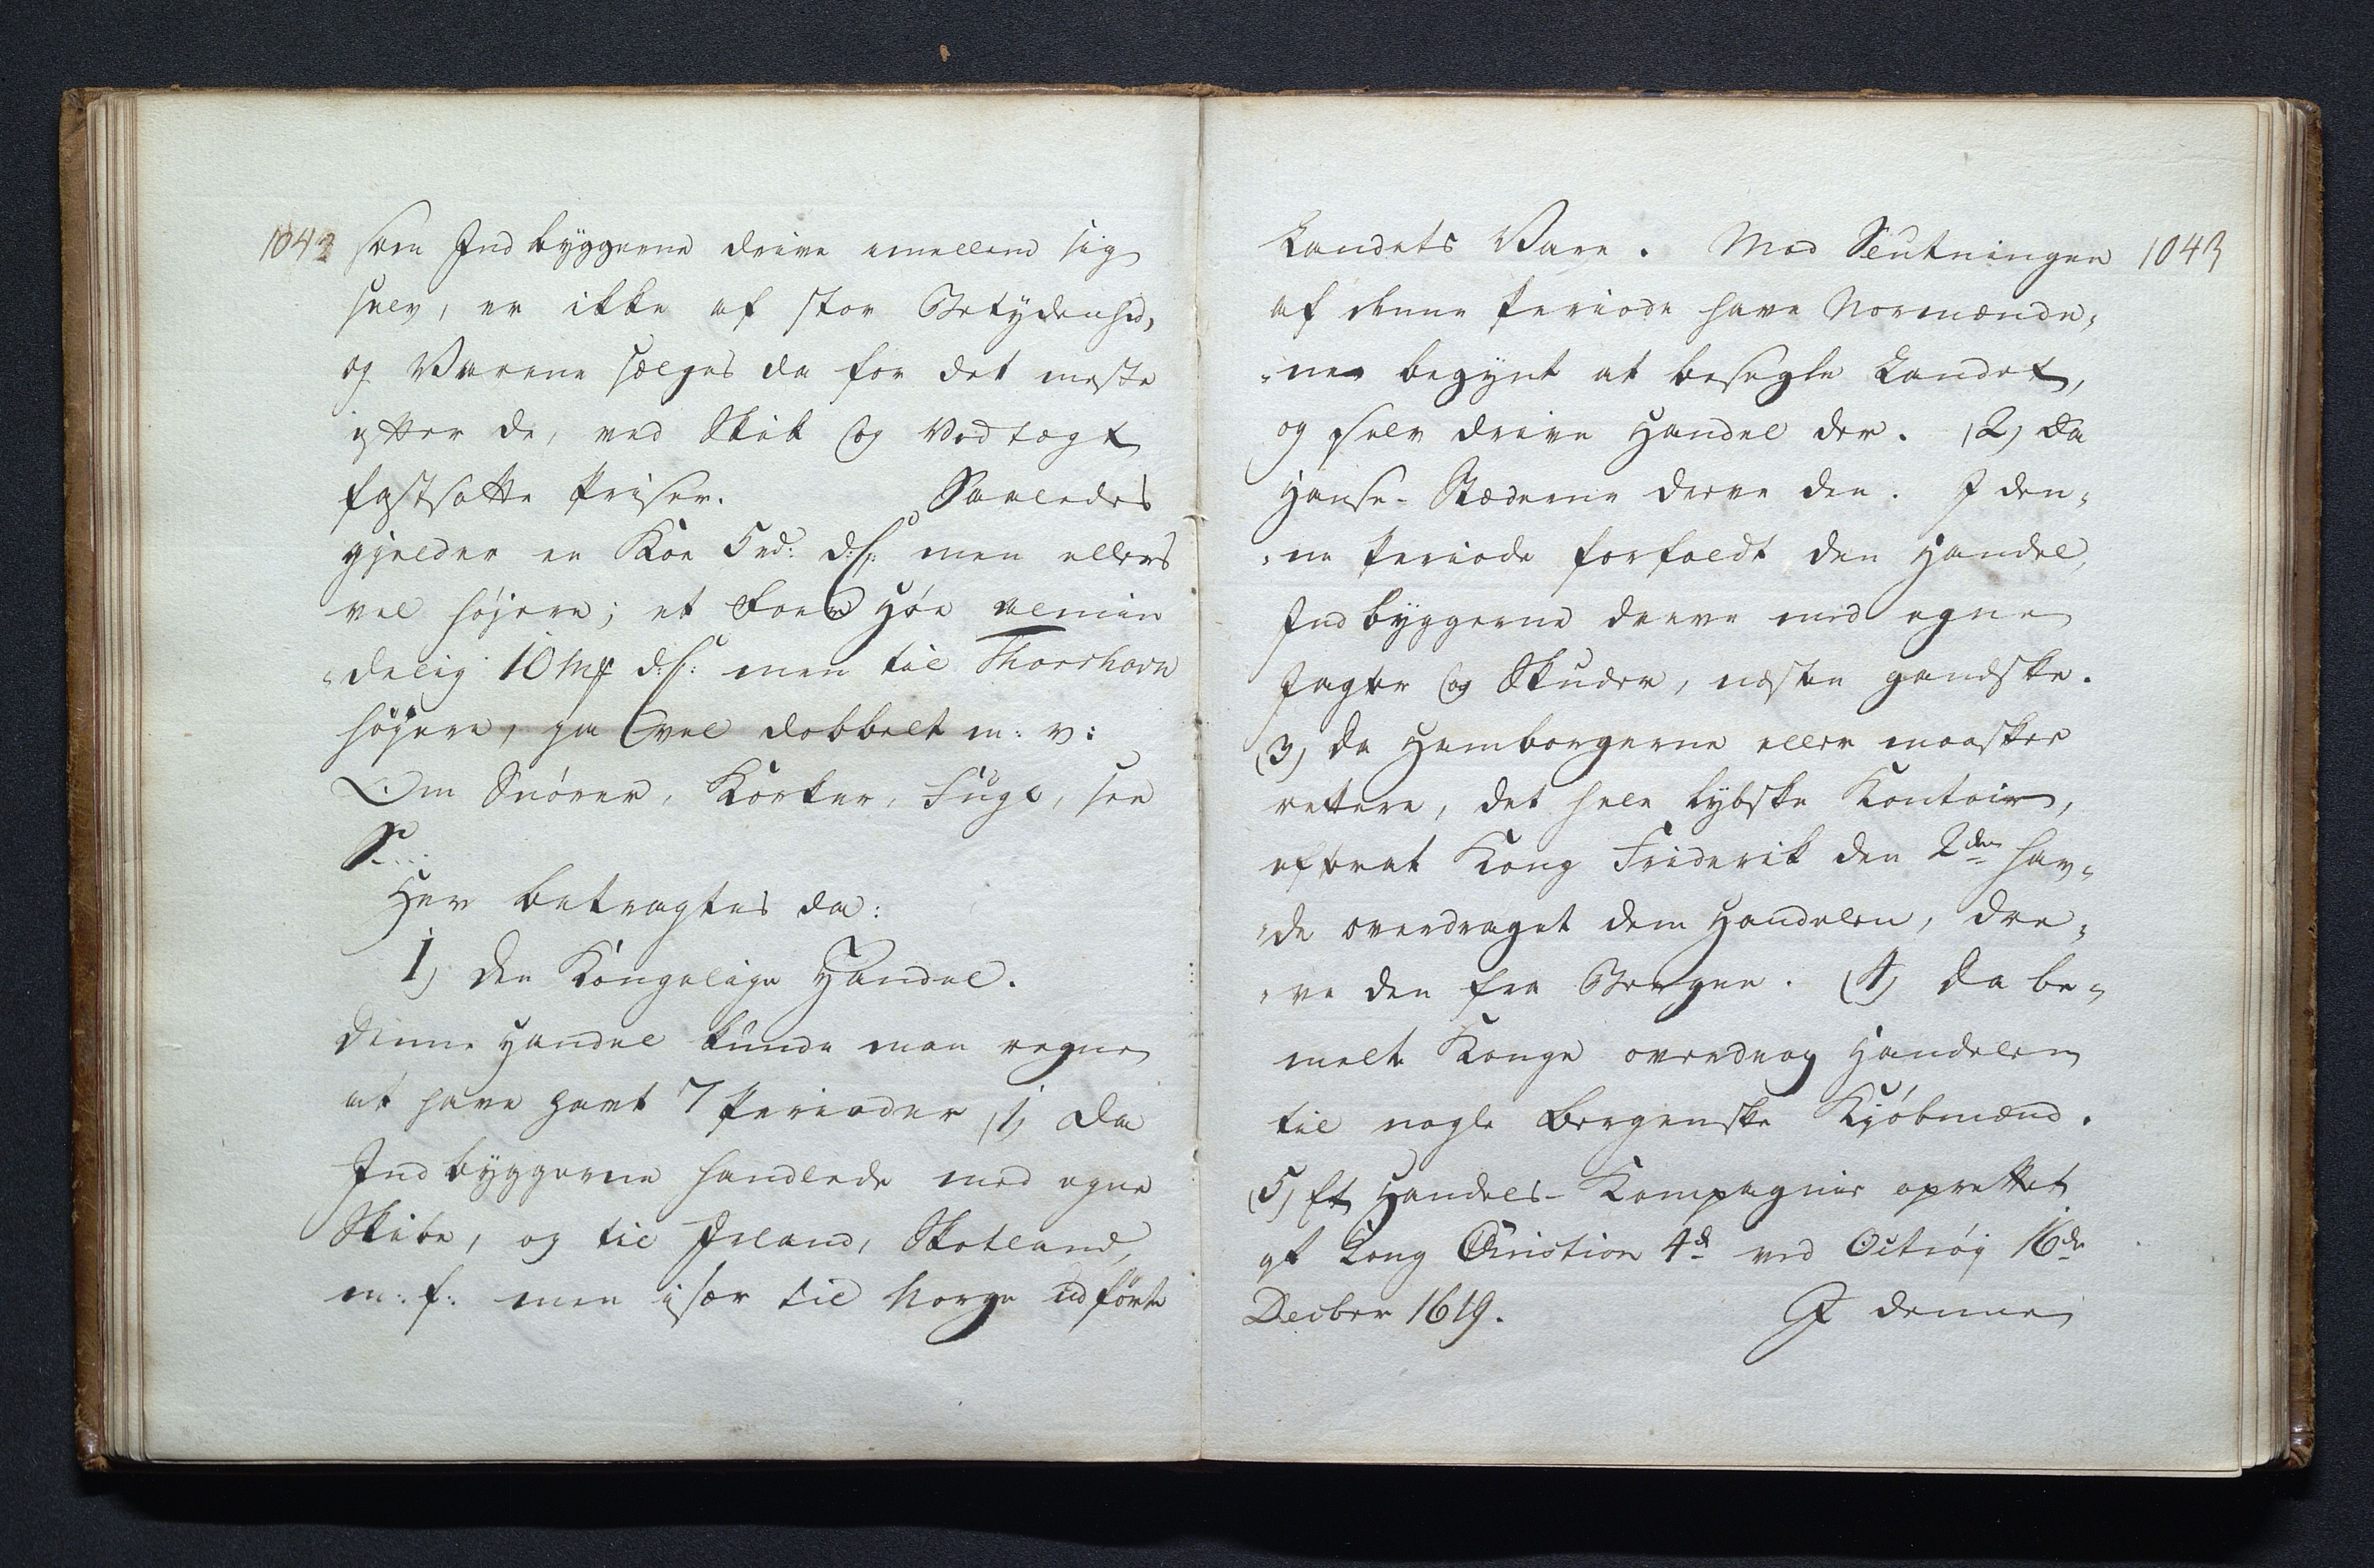 1042
som Indbyggerne drive imellem sig
selv, er ikke af stor Betydenhed,
og Varene sælges da for det meste
efter de, ved Skik og Vedtægt
fastsatte Priser. Saaledes
gjelder en Koe 5 rd: d:C: men ellers
vel højere; et Foer Høe almin
"delig 10 mf d:C: men til Thorshavn
højere, ja vel dobbelt m: v:
Om Snörer, Korker, Fugl, see
S....
Her betragtes da:
1) den Kongelige Handel.
Denne Handel kunde man regne
at have havt 7 Perioder (1, da
Indbyggerne handlede med egne
Skibe, og til Irland, Skotland,
m: f: men især til Norge udförte
1043
Landets Vare. Mod Slutningen
af denne Periode have Normænde"
"ne begynt at besegle Landet,
og selv drive Handel der. (2) da
Hanse-Stæderne dreve den. I den"
"ne Periode forfaldt den Handel,
Indbyggerne dreve med egne
Jagter og Skuder, næsten gandske.
(3) da Hamborgerne eller maaskee
rettere, det hele lybske Kontoir,
efterat Kong Friderik den 2den hav"
"de overdraget dem Handelen, dre"
"ve den fra Bergen. (4) da be"
melte Konge overdrog Handelen
til nogle Bergenske Kjöbmænd.
(5) Et Handels-Kompagnie oprettet
af Kong Christian 4de ved Octroy 16de
Decber 1619. I denne